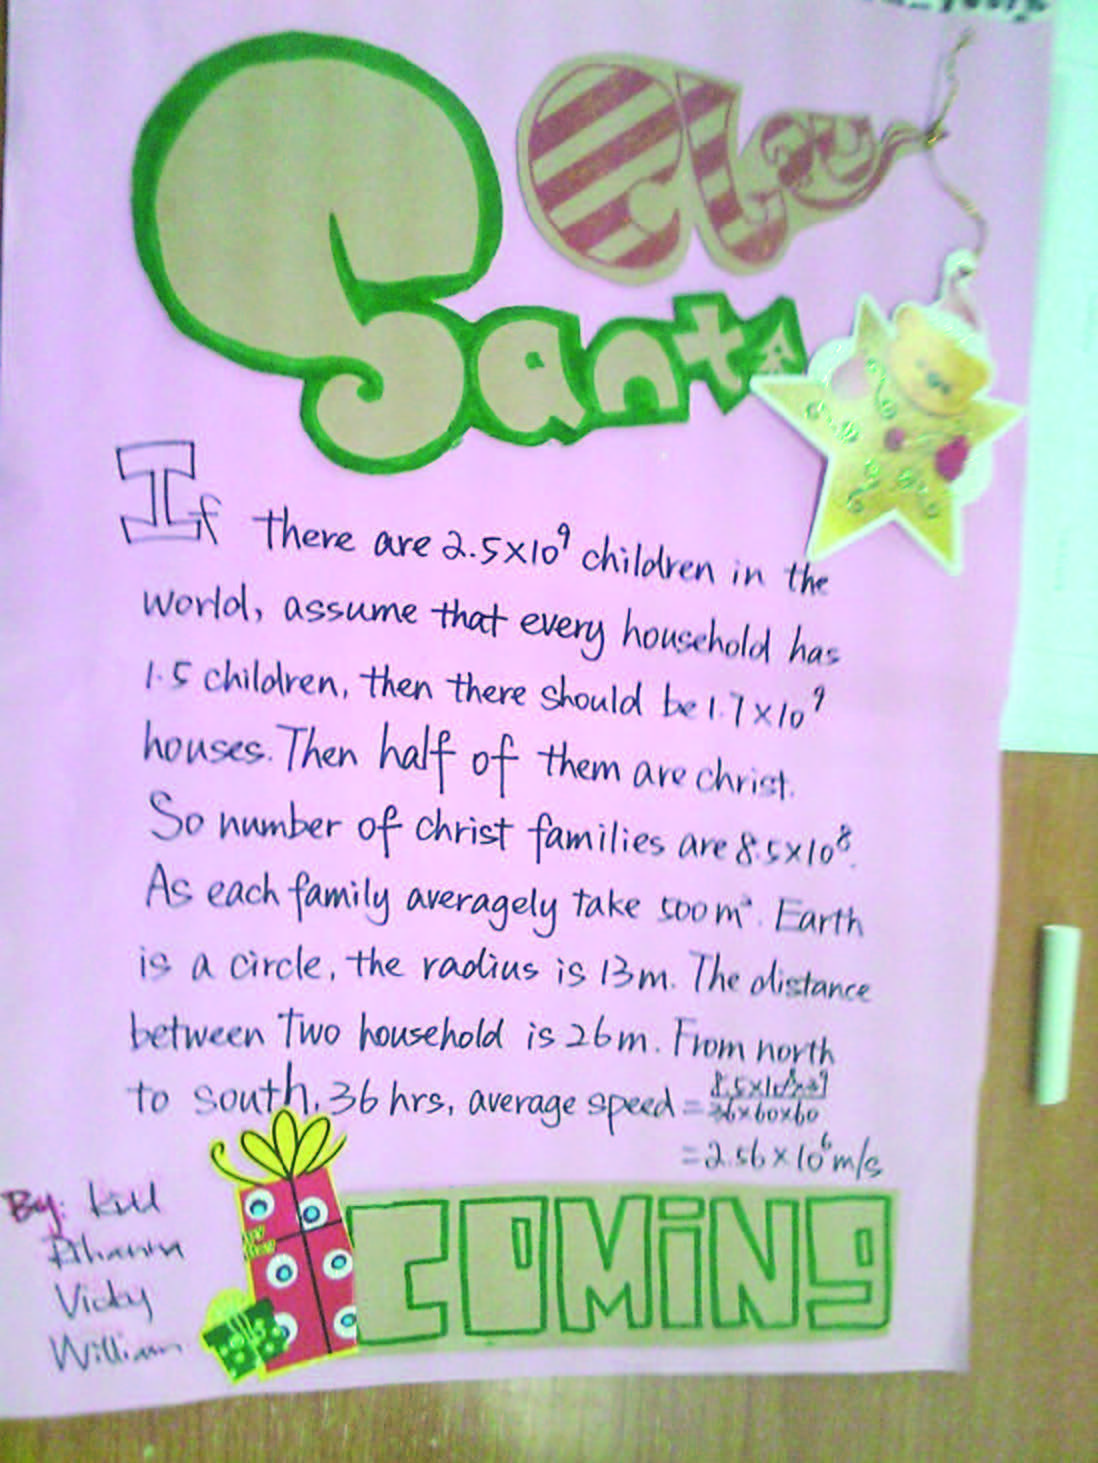 Santa
If there are 2.5×10⁹ children in the
world, assume that every household has
1.5 children, then there should be 1.7×10⁹
houses. Then half of them are christ.
So number of christ families are 8.5×10⁸.
As each family averagely take 500m². Earth
is a circle, the radius is 13m. The distance
between two household is 26m. From north
to south, 36 hrs, average speed =
36×60×60
=2.56×10⁶m/s
By:
Rihanna
Vicky
William
COMiNg